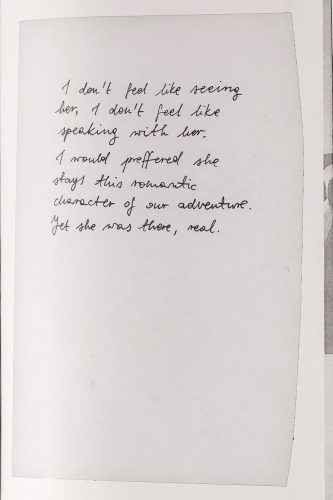 I don't feel like seeing
her, I don't feel like
speaking with her.
I would preffered she
stays this romantic
character of our adventure.
Yet she was there, real.